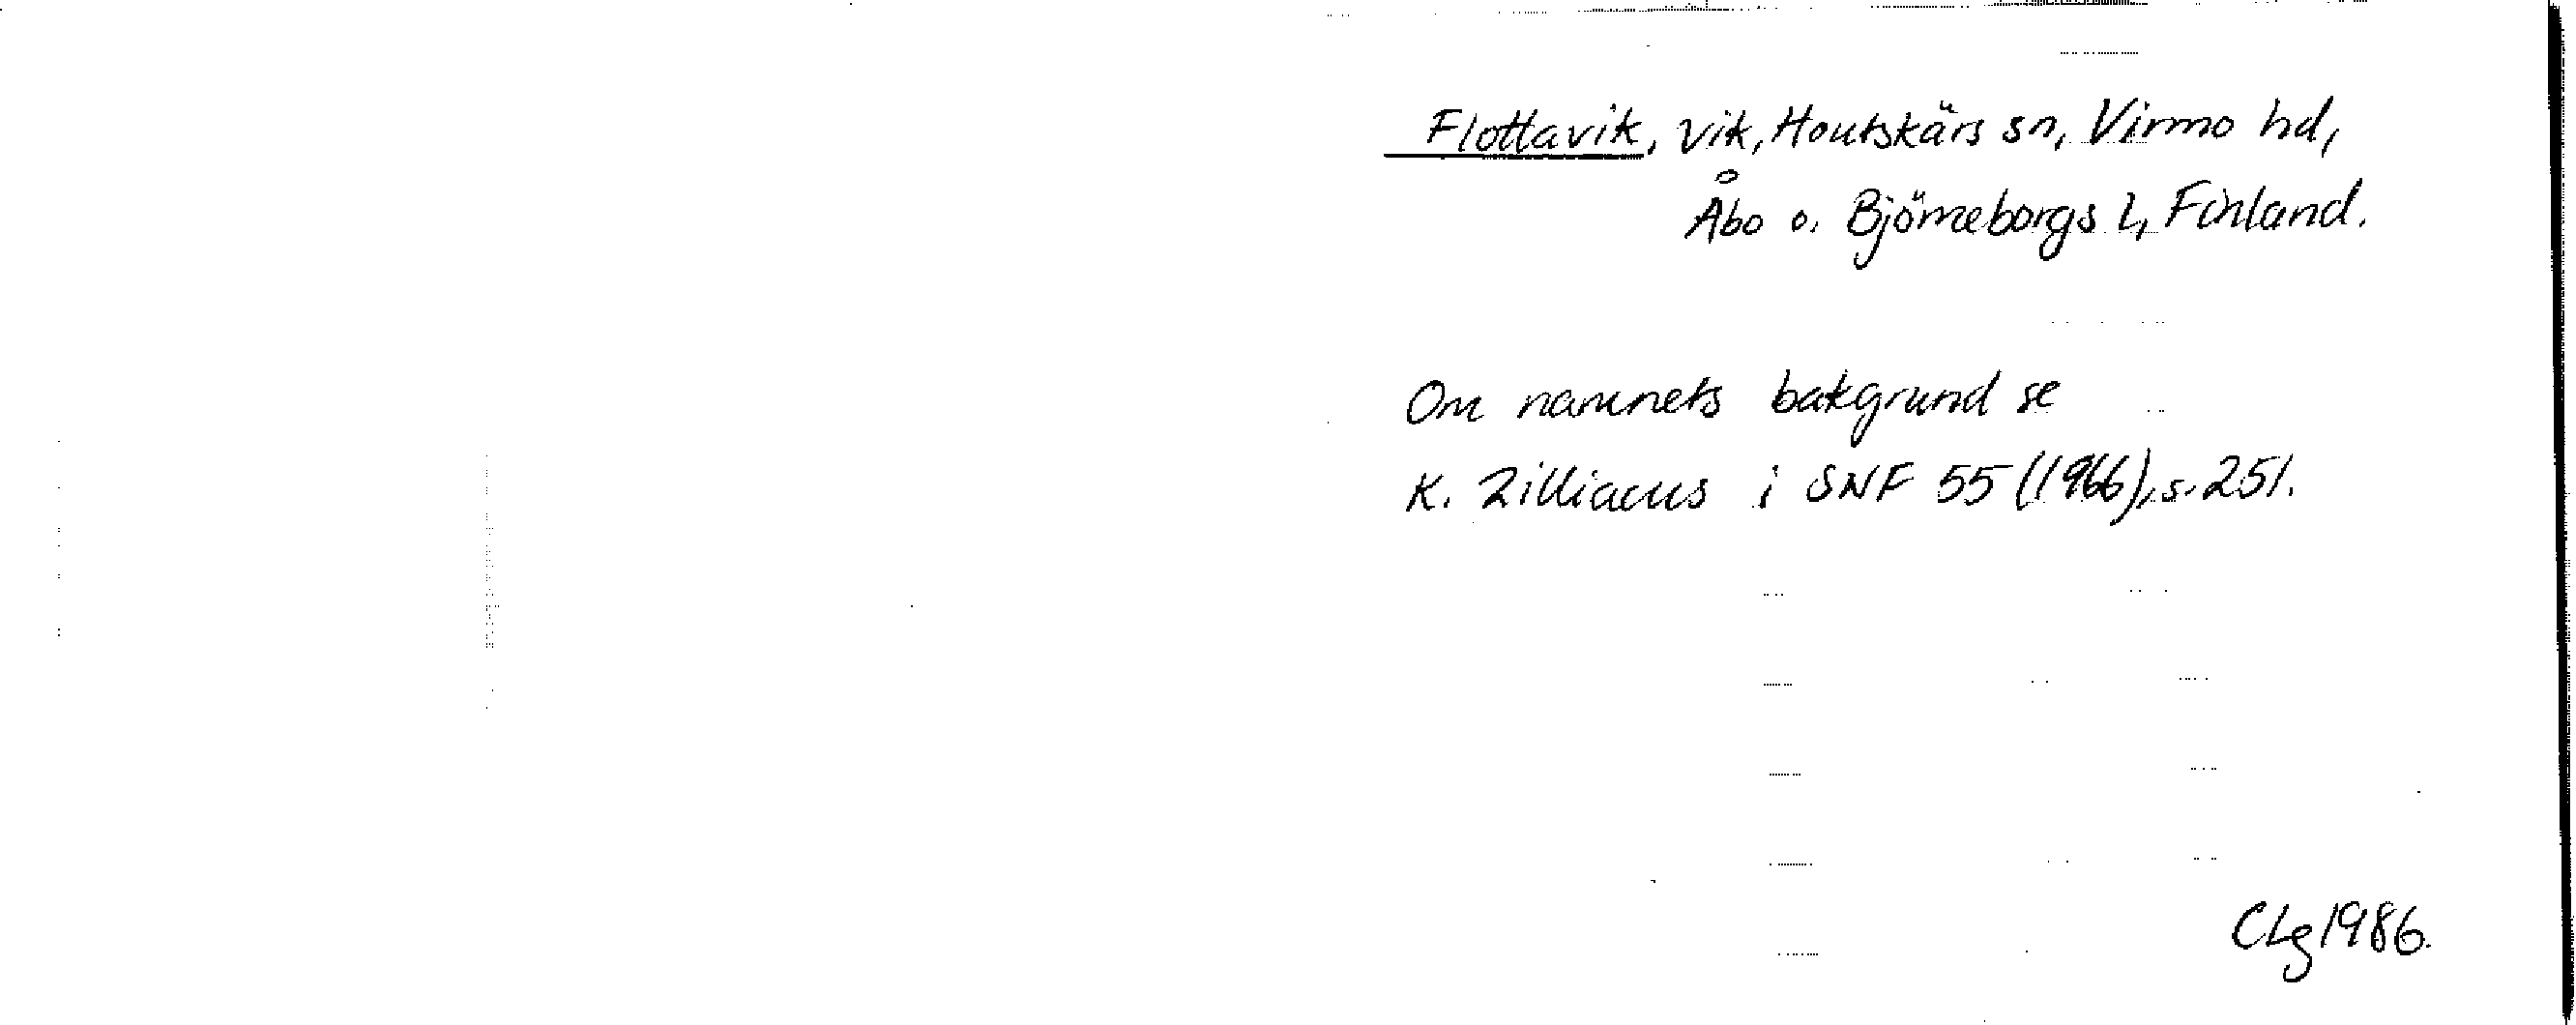 Flottavik, vik, Houtskärs sn, Virmo hd,
Åbo o. Björneborgs l, Finland.
Om namnets bakgrund se
K. Zilliacus i SNF 55 (1966), s. 251.
CLg 1986.